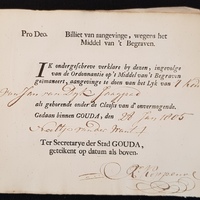 Pro Deo. Billiet van aangevinge, wegens het
Middel van 't Begraven.
IK ondergeschreve verklare by dezen, ingevolge
van de Ordonnantie op 't Middel van 't Begraven
geimaneert, aangevinge te doen van het Lyk van 1 Kind
van Jan van
als gehorende onder de Classis van d'onvermogende.
Gedaan binnen GOUDA, den 28 Jan 1805
Ter Secretarye der Stad GOUDA,
geteikent op datum als boven.